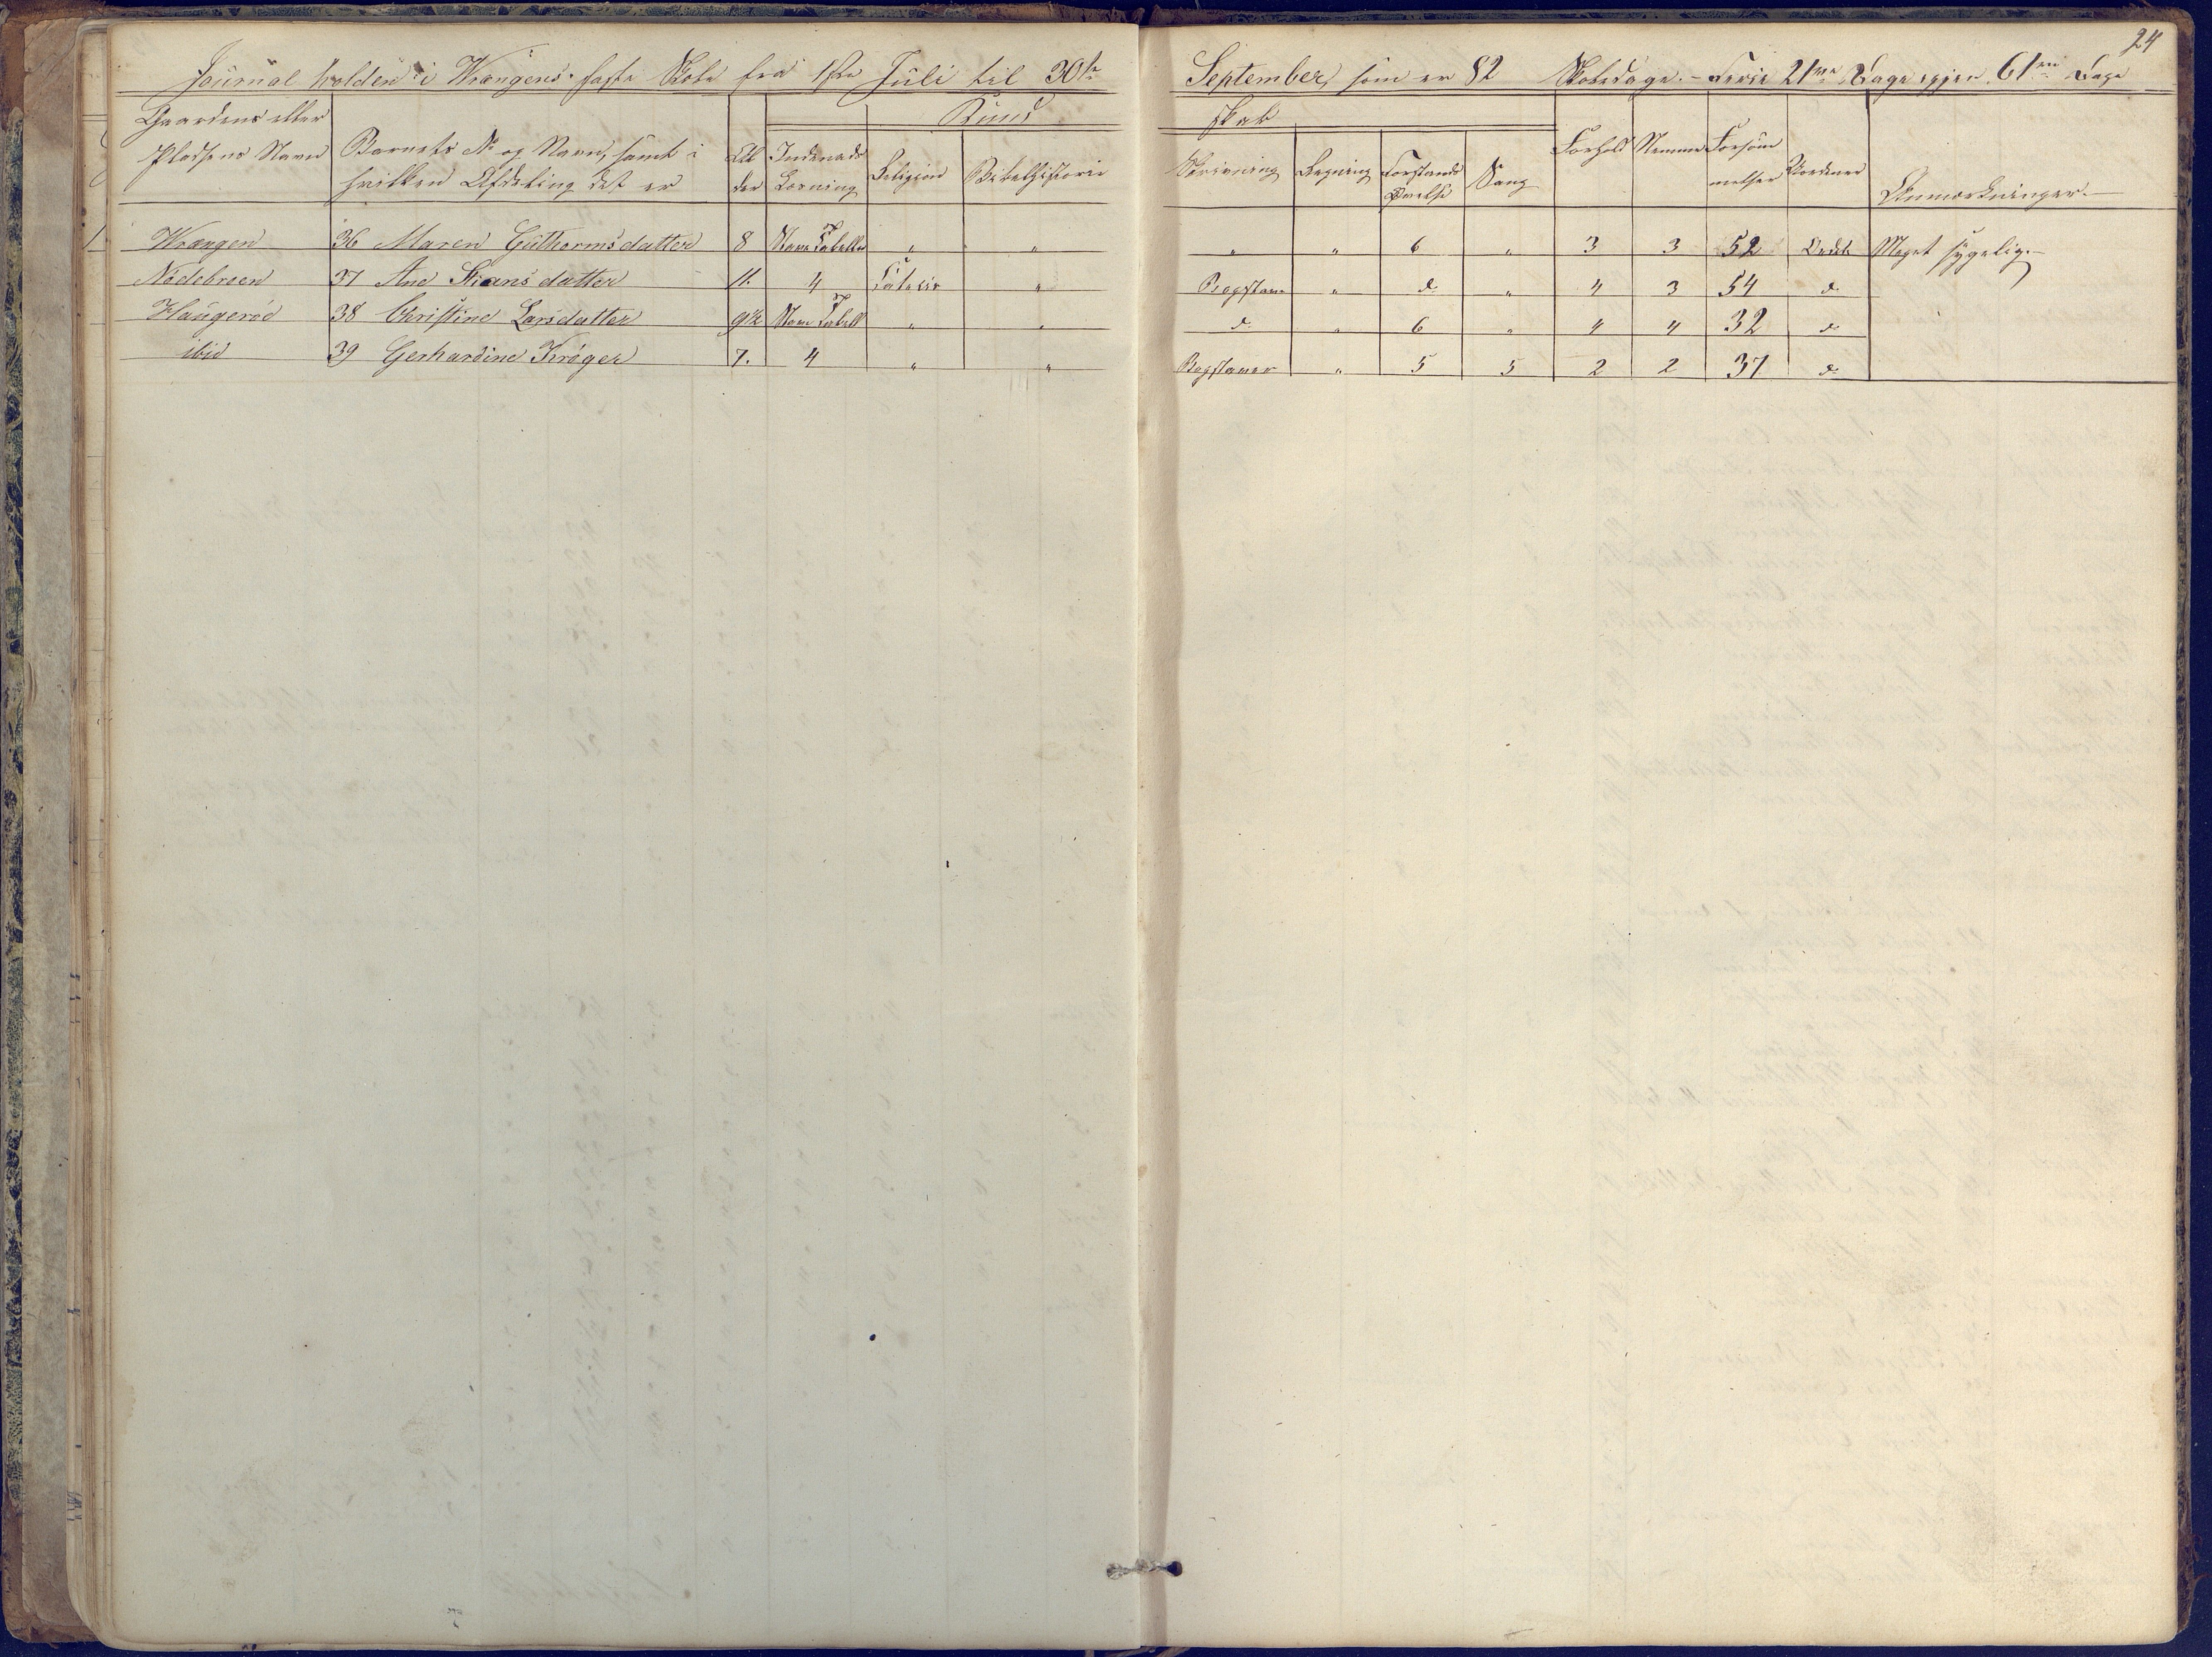 24
Journal holden i Wrængens faste Skole fra 1ste Juli til 30te September, som er 82 Skoledage. – Ferie 21ve Dage igjen 61en Dage
Gaardens eller Pladsens Navn | Barnets No og Navn, samt i hvilken Afdeling det er | Alder | Indenads Læsning | Kundskab
Religion | Bibelhistorie | Skrivning | Regning | Forstands Øvelse | Sang | Forhold | Nemme | Forsømmelser | Uordener | Anmærkninger.
Wrængen 36 Maren Guthormsdatter 8 Stave Tabeller " " " " 6 " 3 3 52 Meget sygelig. –
Nødebroen 37 Ane Stiansdatter 11. 4 " Bogstav " d. " 4 3 54 d.
Haugerød 38 Christine Larsdatter 9½ Stave Tabell " " d. " 6 " 4 4 32 d.
ibid 39 Gerhardine Krøger 7. 4 " " Bogstaver " 5 5 2 2 37 d.